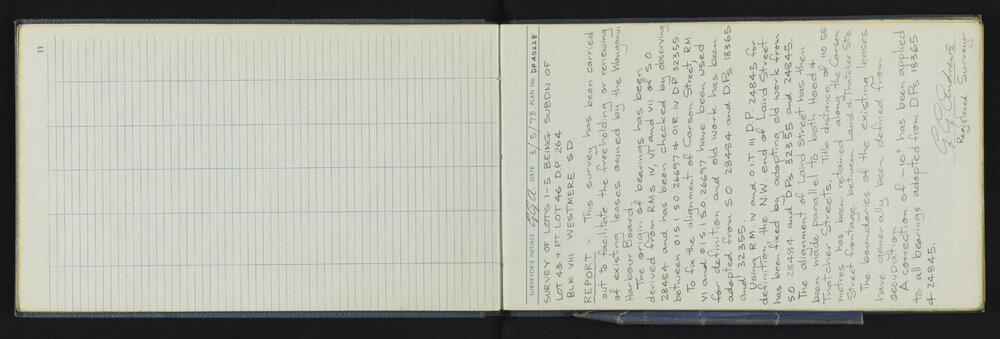 11
SURVEYOR'S INITIALS GGA DATE 3/5/73 PLAN No. DP 40228
SURVEY OF LOTS 1-5 BEING SUBDN OF
LOT 43 & PT LOT 46 DP 264
BLK VIII WESTMERE SD
REPORT - This survey has been carried
out to facilitate the freeholding or renewing
of existing leases owned by the Wanganui
Harbour Board.
The origin of bearings has been
derived from RMs IV, VI and VII of S.O.
28484 and has been checked by observing
between OIS I SO 26697 & OIR IV DP 32355
To fix the alignment of Carson Street, RM
VI and OIS I S.O. 26697 have been used
for definition and old work has been
adopted from S.O. 28484 and D.Ps 18365
and 32355.
Using RM IV and OIT III D.P. 24845 for
definition, the N.W. end of Laird Street
has been fixed by adopting old work from
SO 28484 and DPs 32355 and 24845.
The alignment of Laird Street has then
been made parallel to both Heed &
Thatcher Streets. Title distance of 110.58
metres has been retained along the Carson
Street frontage between Laird & Thatcher Sts
The boundaries of the existing leases
have generally been defined from
occupation.
A correction of -10" has been applied
to all bearings adopted from D.Ps 18365
& 24845.
G.G. Andrews
Registered Surveyor